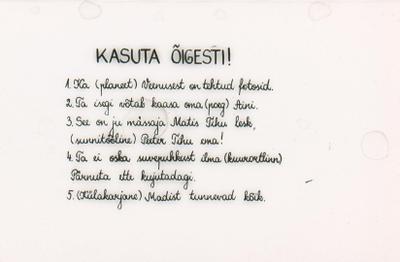 KASUTA ÕIGESTI!
1. Ka (planeet) Veenusest on tehtud fotosid.
2. Ta isegi võtab kaasa oma (poeg) Aini.
3. See on ju mässaja Matis Tihu lesk,
(sunnitööline) Peeter Tihu ema!
4. Ta ei oska suvepuhkust ilma (kuurortlinn)
Pärnuta ette kujutadagi.
5. (Külakarjane) Madist tunnevad kõik.